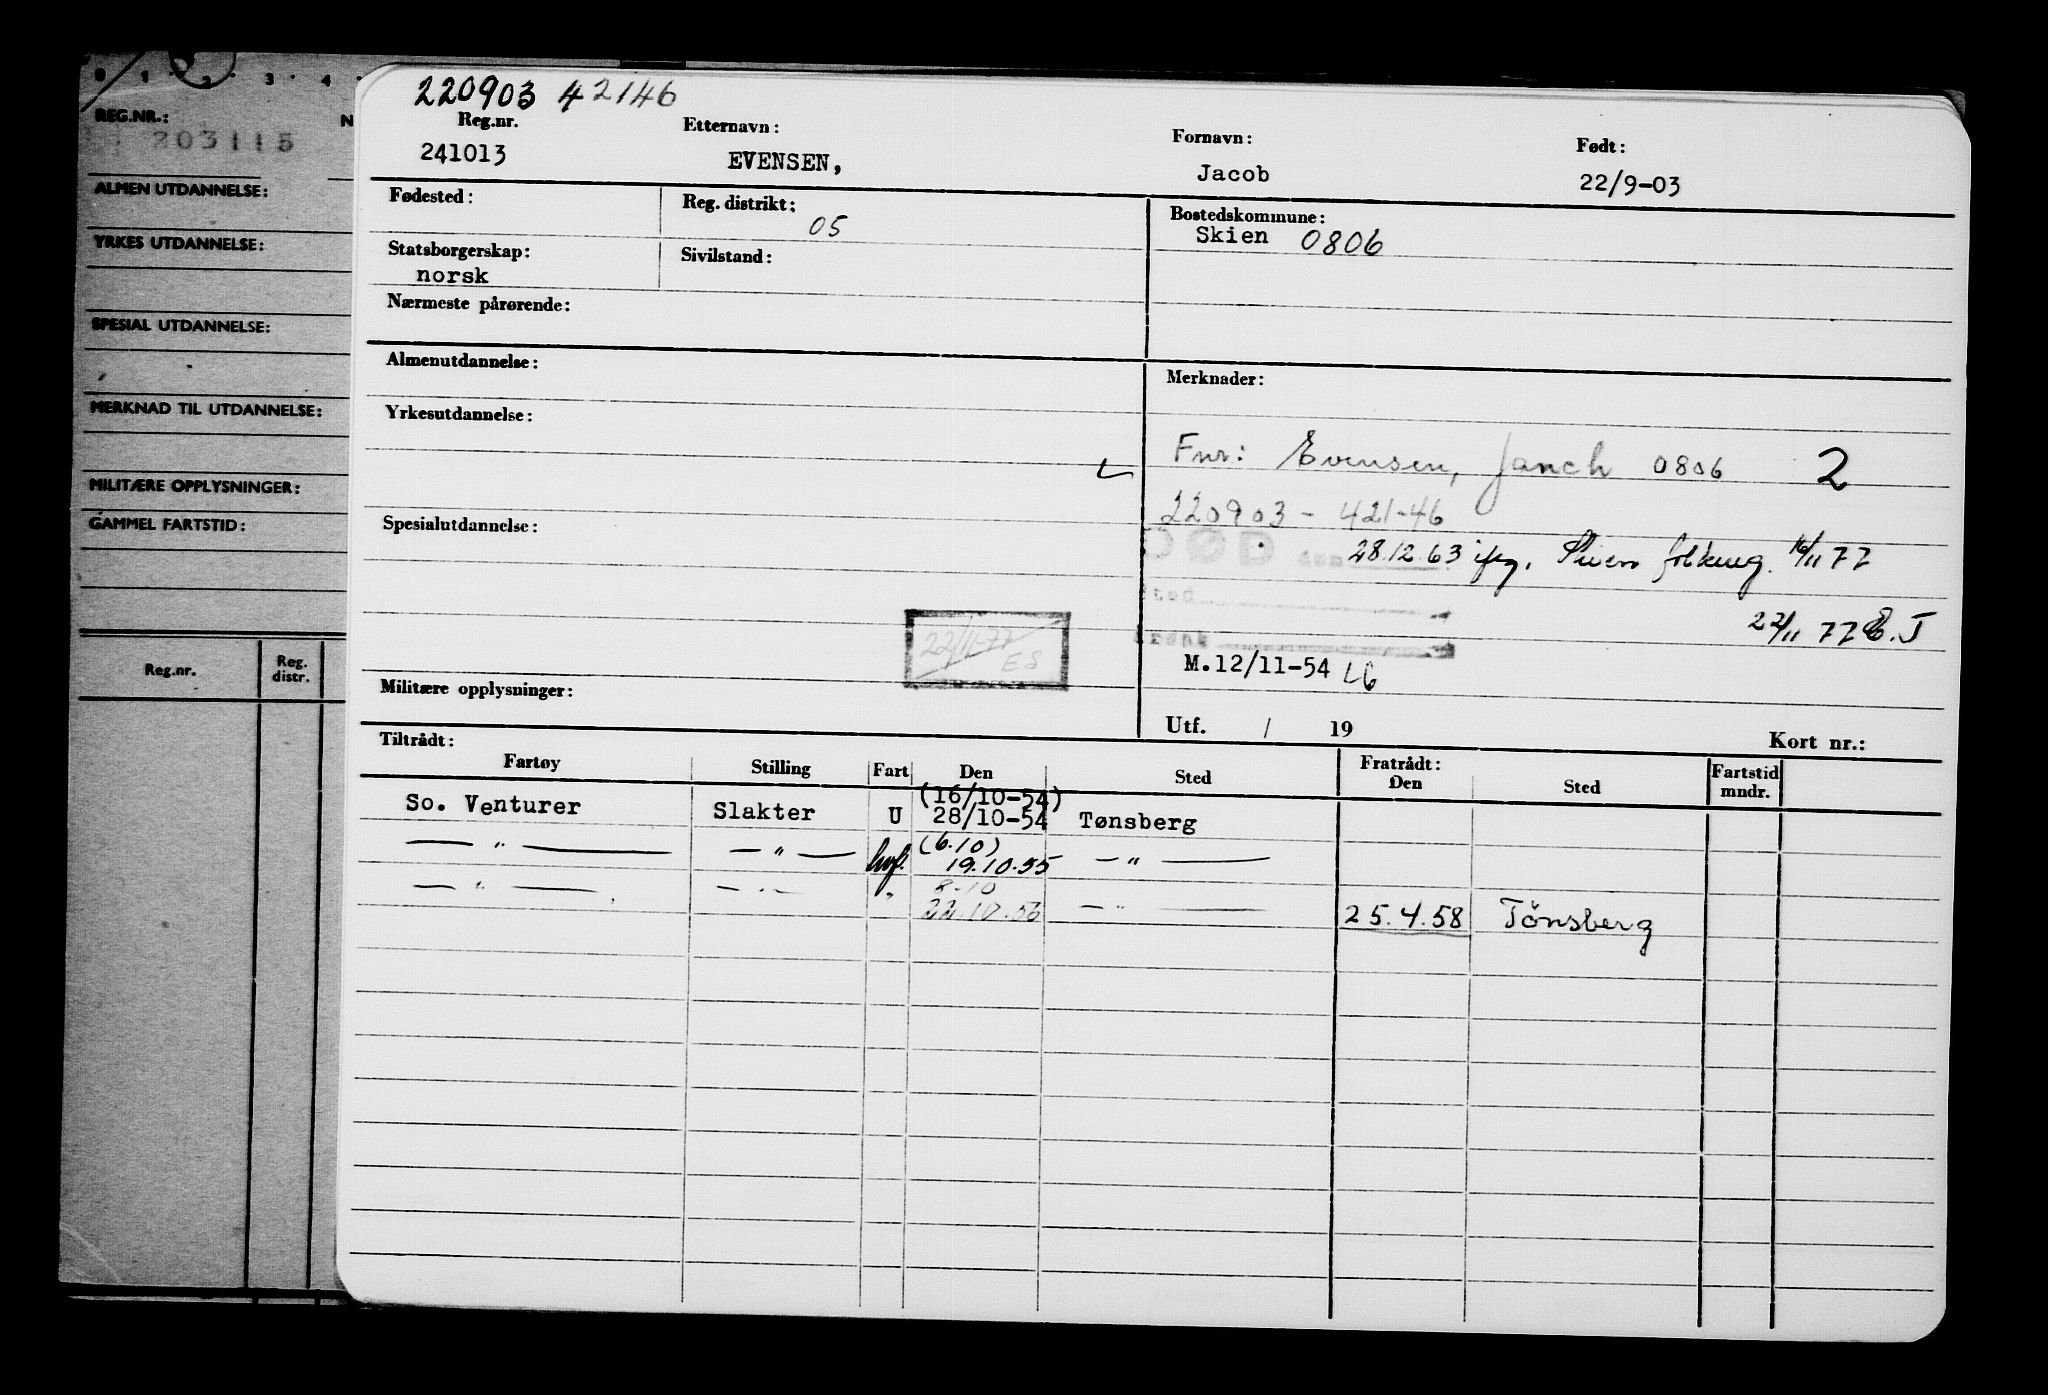 0 1 2 3 4
REG.NR.: N
203115
ALMEN UTDANNELSE:
YRKES UTDANNELSE:
SPESIAL UTDANNELSE:
MERKNAD TIL UTDANNELSE:
MILITÆRE OPPLYSNINGER:
GAMMEL FARTSTID:
Reg.nr. Reg. distr.
220903 42146
Reg.nr. Etternavn: Fornavn: Født:
241013 EVENSEN, Jacob 22/9-03
Fødested: Reg. distrikt: 05 Bostedskommune:
Skien 0806
Statsborgerskap: Sivilstand:
norsk
Nærmeste pårørende:
Almenutdannelse: Merknader:
Yrkesutdannelse:
Fnr: Evensen, Janch 0806 2
220903 - 421-46
Spesialutdannelse:
DØD den 28.12.63 ifg. Skien folkereg. 16/11 77
Sted
22/11 77 E.J
22/11-77
ES
M.12/11-54 LG
Militære opplysninger:
Utf. / 19 Kort nr.:
Tiltrådt: Fratrådt:
Fartøy Stilling Fart Den Sted Den Sted Fartstid mndr.
(16/10-54)
So. Venturer Slakter U 28/10-54 Tønsberg
(6.10)
— " — — " — hvf. 19.10.55 — " —
8.10
— " — — " — " 22.10.56 — " — 25.4.58 Tönsberg